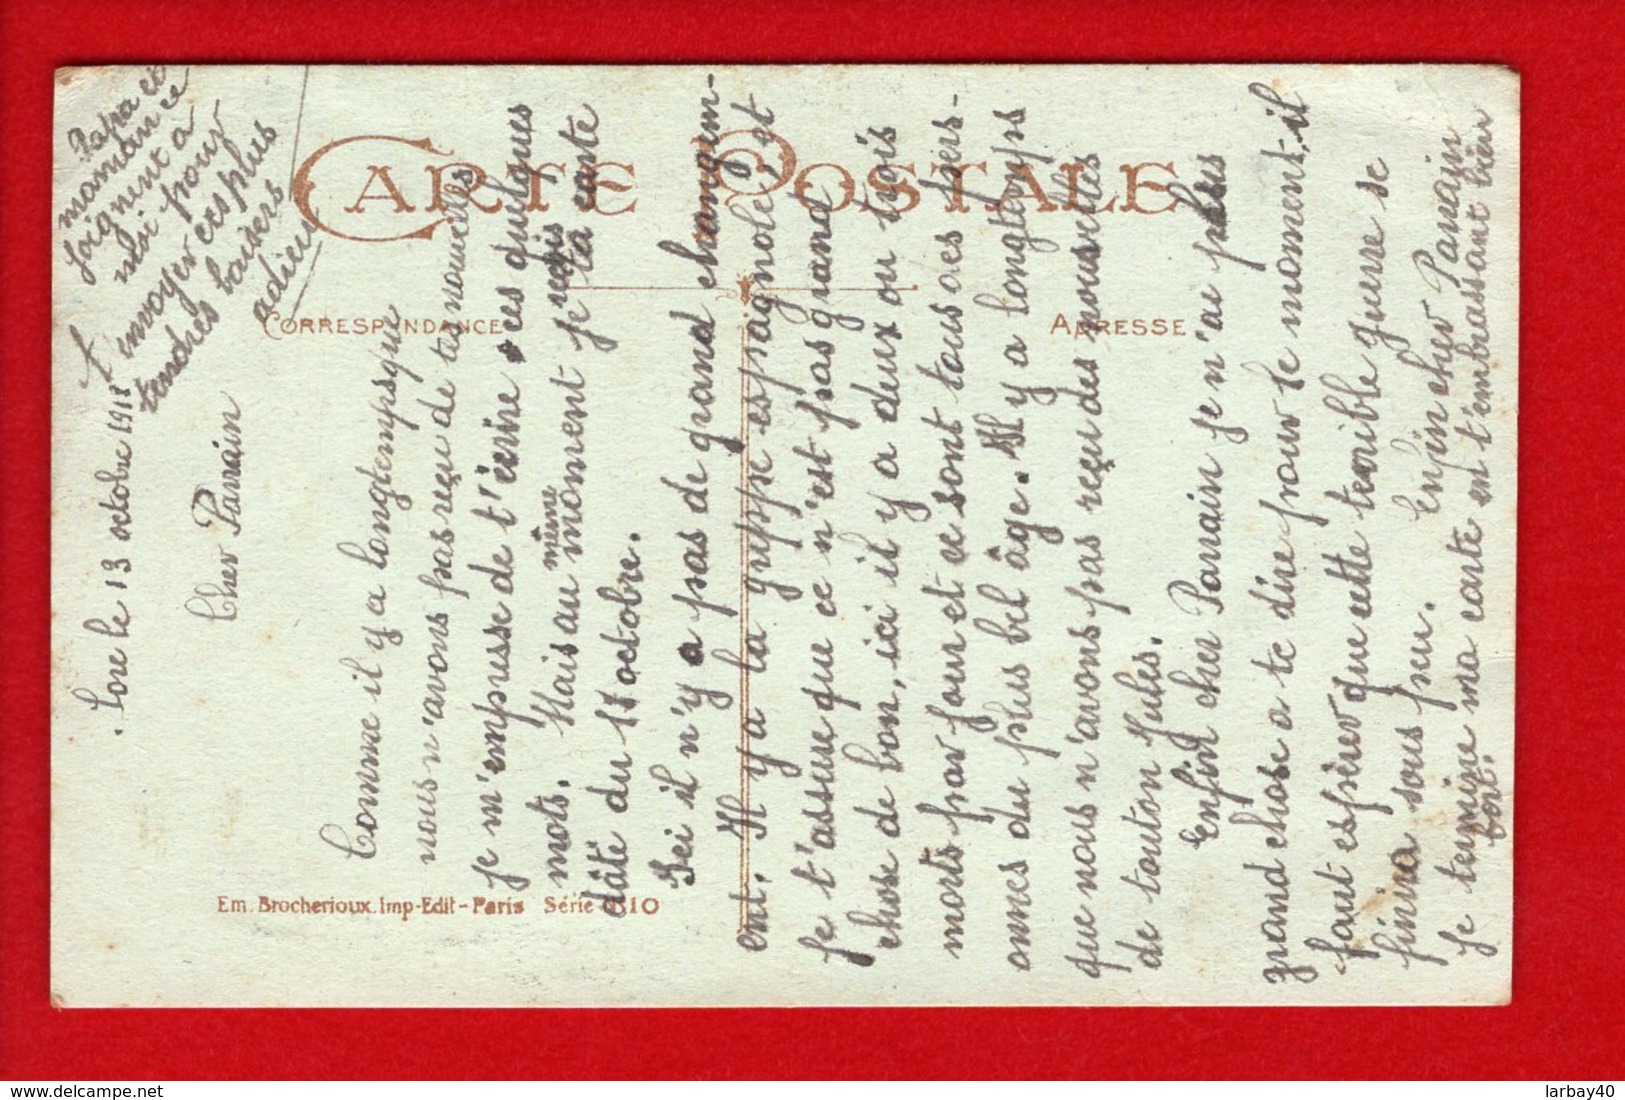 CARTE POSTALE
CORRESPONDANCE
ADRESSE
Em. Brocherioux. Imp-Edit-Paris Série 0810
le 13 octobre 1918
Cher Parrain
Comme il y a longtempsque
nous n'avons pas reçu de tes nouvelles
je m'empresse de t'écrire ces quelques
mots. Mais au moment même je reçois ta carte
dâté du 11 octobre.
Ici il n'y a pas de grand changem-
ent. Il y a la grippe espagnole, et
je t'assure que ce n'est pas grand
chose de bon, ici il y a deux ou trois
morts par jour et ce sont tous des pers-
onnes du plus bel âge. Il y a longtemps
que nous n'avons pas reçu des nouvelles
de tonton Jules.
Enfin cher Parrain je n'ai plus
grand chose a te dire pour le moment, il
faut espérer que cette terrible guerre se
finira sous peu. Enfin cher Parrain
Je termine ma carte en t'embrassant bien
fort.
Papa et
maman se
joignent a
moi pour
t'envoyer ces plus
tendres baisers
adieu
delcampe.net
larbay40